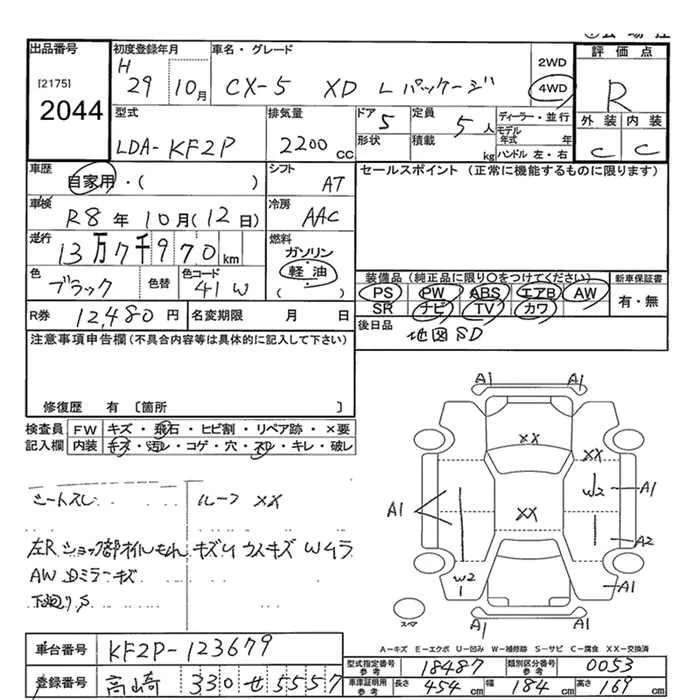 出品番号
[2175]
2044
初度登録年月
H 29 10月
車名・グレード
CX-5 XD Lパッケージ
2WD
4WD
評価点
R
外装 内装
C C
型式
LDA-KF2P
排気量
2200 cc
ドア 5
形状
定員 5人
積載 kg
ディーラー・並行
モデル年式 年
ハンドル 左・右
車歴
自家用・( )
シフト
AT
セールスポイント (正常に機能するものに限ります)
車検
R8年10月(12日)
冷房
AAC
走行
13万7千970km
燃料
ガソリン
軽・油
( )
色
ブラック
色替
色コード
41W
装備品(純正品に限り○をつけてください)
PS PW ABS エアB AW
SR ナビ TV カワ
新車保証書
有・無
R券 12,480円
名変期限 月 日
後日品
地図SD
注意事項申告欄(不具合内容等は具体的に記入して下さい)
修復歴 有 〔箇所 〕
検査員記入欄
FW キズ・飛石・ヒビ割・リペア跡・×要
内装 キズ・汚レ・コゲ・穴・スレ・キレ・破レ
シートスレ
ルーフ XX
左Rショック部オイルもれ キズU カスキズ Wムラ
AW Dミラーキズ
下廻りS
A1 A1
XX
XX
W2
A1
A1
XX
A2
W2
1
A1
スマ
A1 A1
A-キズ E-エクボ U-凹み W-補修跡 S-サビ C-腐食 XX-交換済
車台番号
KF2P-123679
登録番号
高崎 330 せ 5557
型式指定番号参考
18487
類別区分番号参考
0053
車庫証明用参考
長さ 454cm 幅 184cm 高さ 169cm